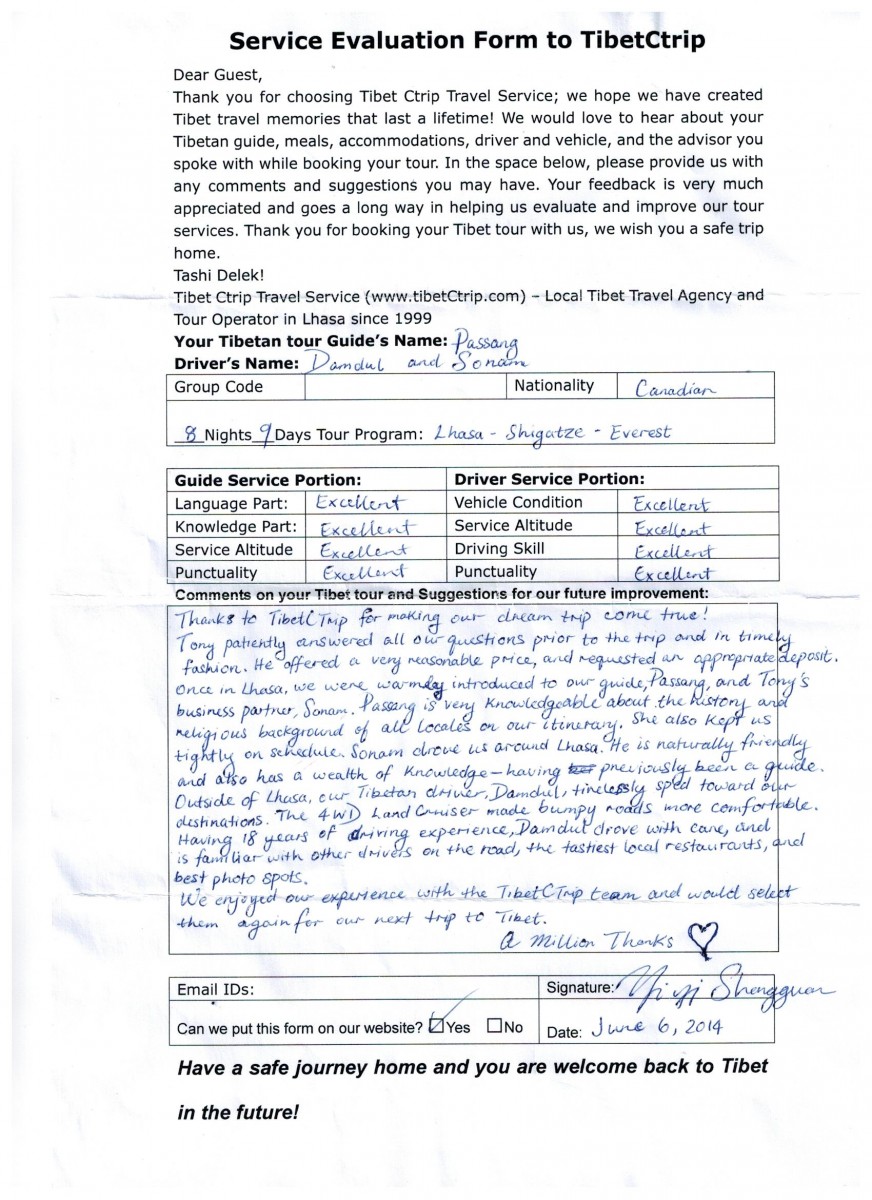 Service Evaluation Form to TibetCtrip
Dear Guest,
Thank you for choosing Tibet Ctrip Travel Service; we hope we have created
Tibet travel memories that last a lifetime! We would love to hear about your
Tibetan guide, meals, accommodations, driver and vehicle, and the advisor you
spoke with while booking your tour. In the space below, please provide us with
any comments and suggestions you may have. Your feedback is very much
appreciated and goes a long way in helping us evaluate and improve our tour
services. Thank you for booking your Tibet tour with us, we wish you a safe trip
home.
Tashi Delek!
Tibet Ctrip Travel Service (www.tibetCtrip.com) – Local Tibet Travel Agency and
Tour Operator in Lhasa since 1999
Your Tibetan tour Guide's Name: Passang
Driver's Name: Damdul and Sonam
Group Code Nationality Canadian
8 Nights 9 Days Tour Program: Lhasa - Shigatze - Everest
Guide Service Portion: Driver Service Portion:
Language Part: Excellent Vehicle Condition Excellent
Knowledge Part: Excellent Service Altitude Excellent
Service Altitude Excellent Driving Skill Excellent
Punctuality Excellent Punctuality Excellent
Comments on your Tibet tour and Suggestions for our future improvement:
Thanks to TibetCTrip for making our dream trip come true!
Tony patiently answered all our questions prior to the trip and in timely
fashion. He offered a very reasonable price, and requested an appropriate deposit.
Once in Lhasa, we were warmly introduced to our guide, Passang, and Tony's
business partner, Sonam. Passang is very knowledgeable about the history and
religious background of all locales on our itinerary. She also kept us
tightly on schedule. Sonam drove us around Lhasa. He is naturally friendly
and also has a wealth of knowledge - having previously been a guide.
Outside of Lhasa, our Tibetan driver, Damdul, tirelessly sped toward our
destinations. The 4WD Land Cruiser made bumpy roads more comfortable.
Having 18 years of driving experience, Damdul drove with care, and
is familiar with other drivers on the road, the tastiest local restaurants, and
best photo spots.
We enjoyed our experience with the TibetCTrip team and would select
them again for our next trip to Tibet.
A Million Thanks
Email IDs: Signature: Yiyi Shengguan
Can we put this form on our website? Yes No Date: June 6, 2014
Have a safe journey home and you are welcome back to Tibet
in the future!